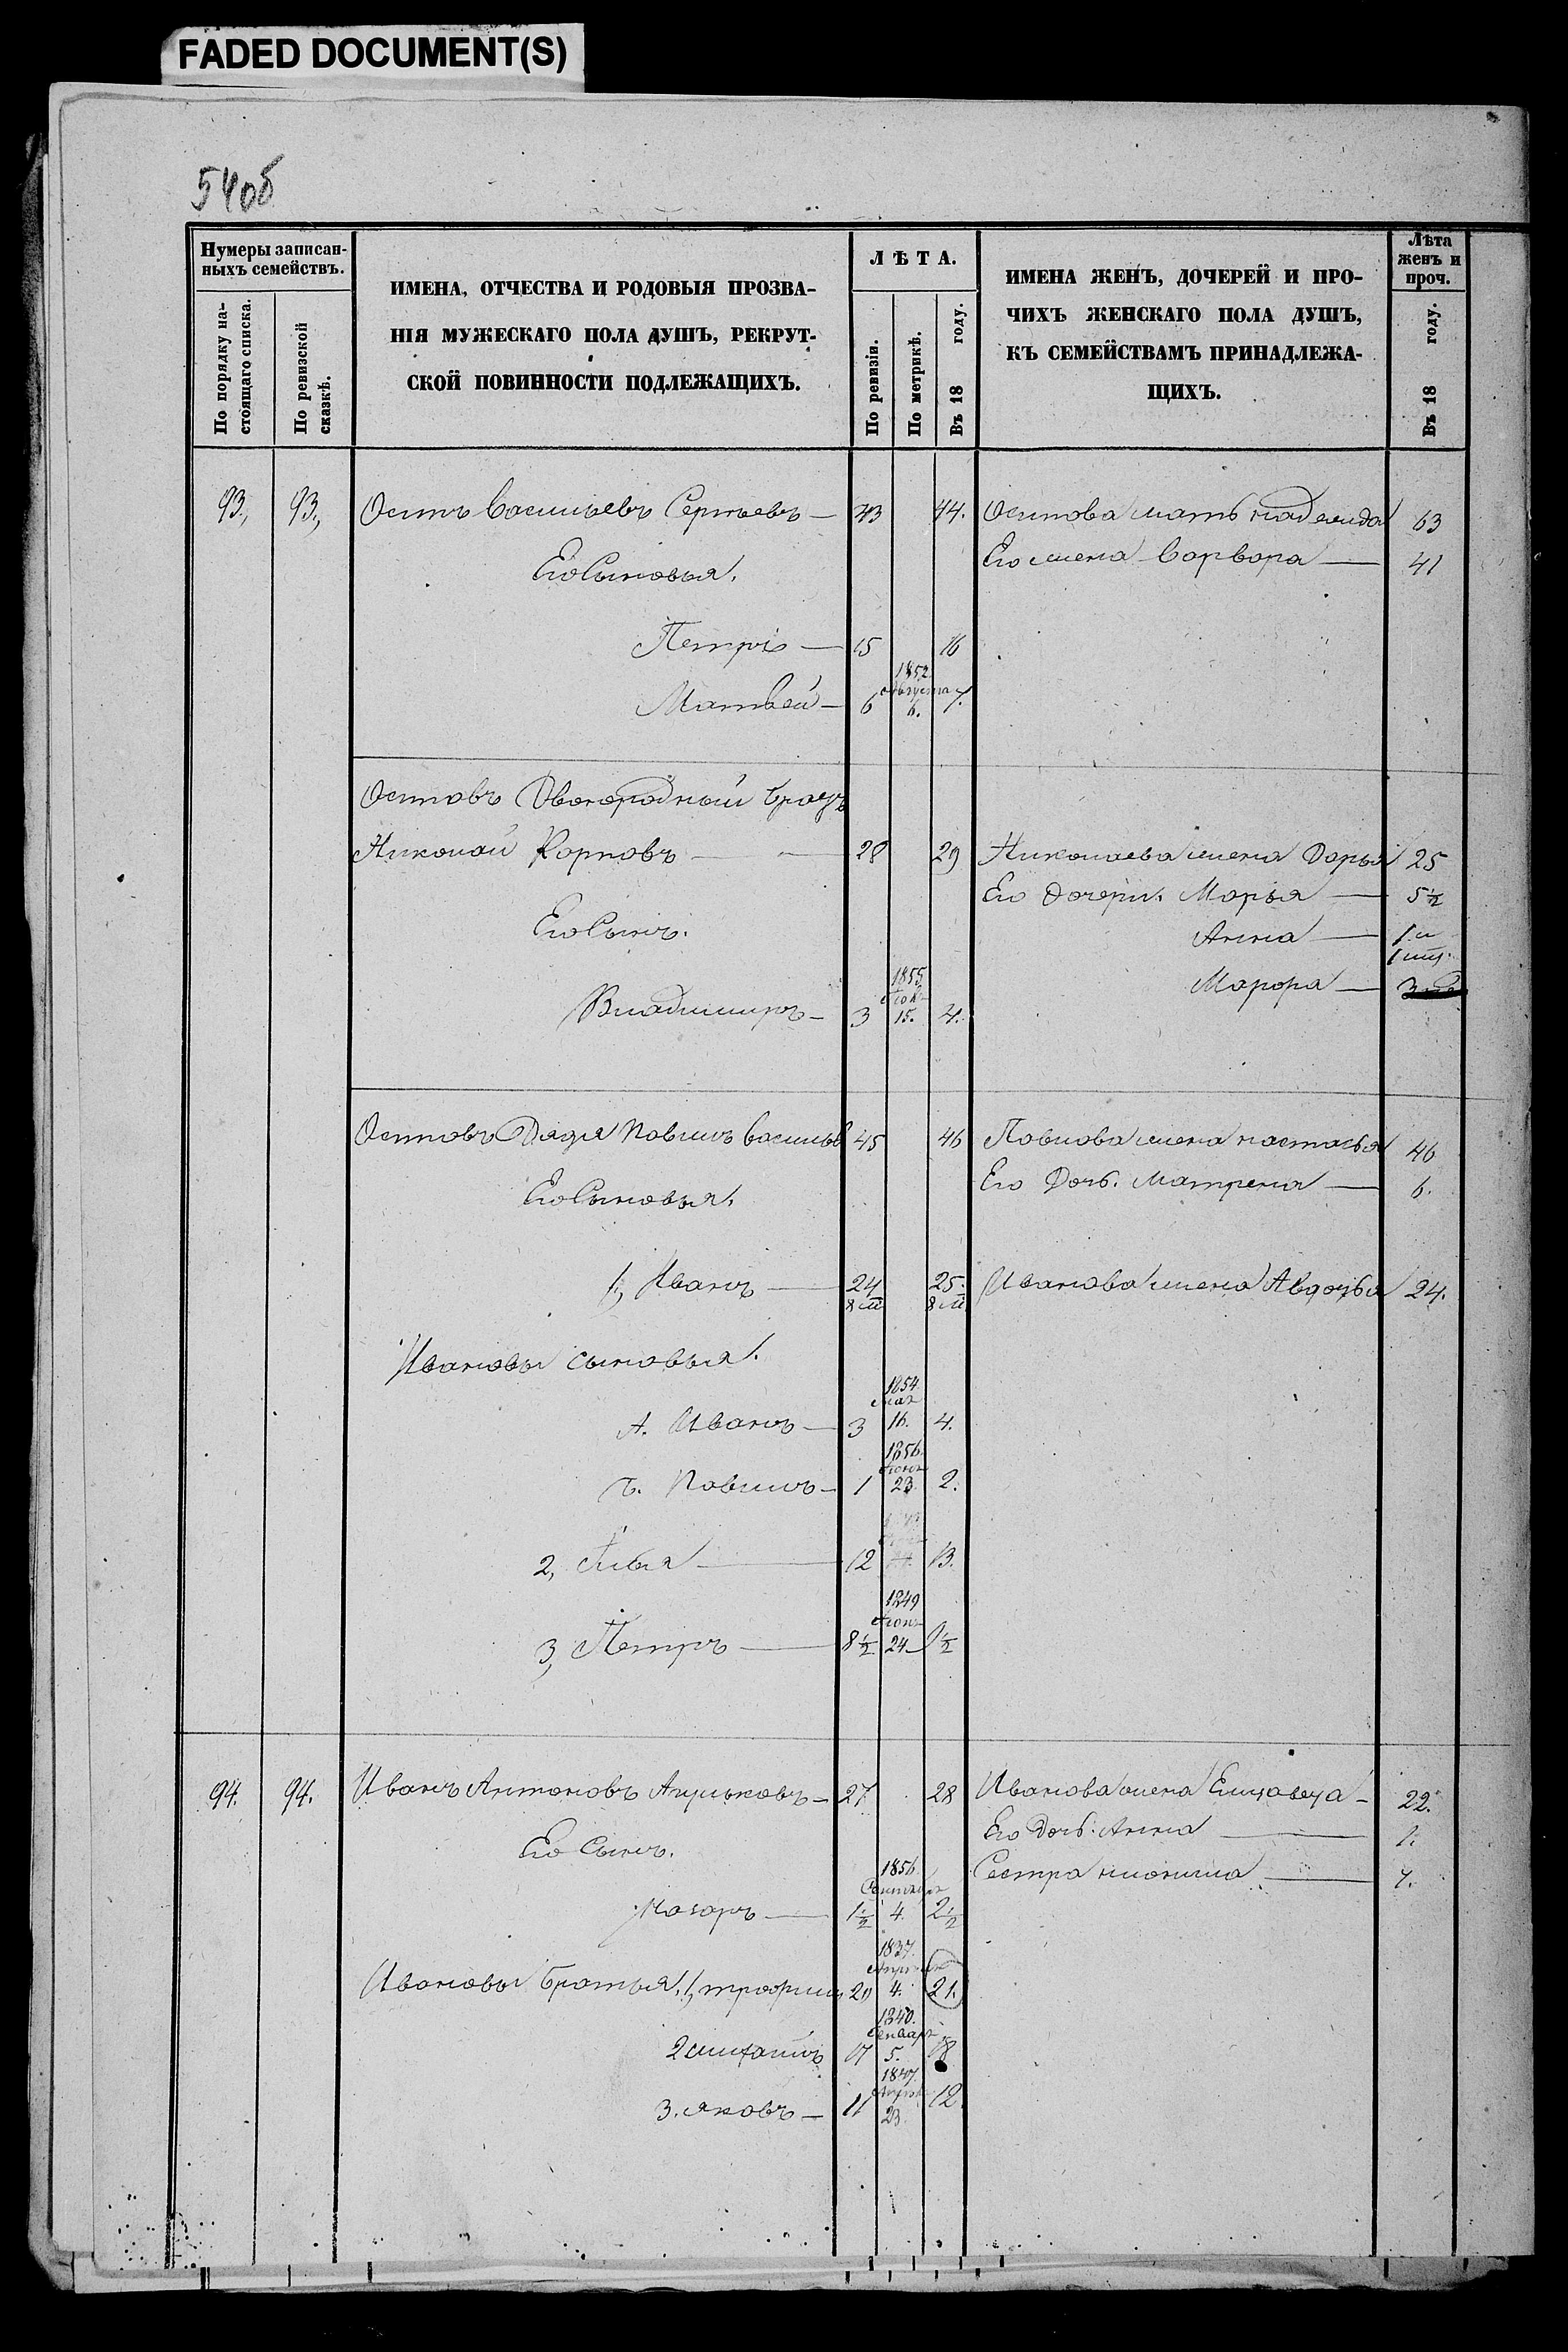 FADED DOCUMENT(S)
54об
Нумеры записан-
ныхъ семействъ.
По порядку на-
стоящаго списка.
По ревизской
сказкѣ.
ИМЕНА, ОТЧЕСТВА И РОДОВЫЯ ПРОЗВА-
НІЯ МУЖЕСКАГО ПОЛА ДУШЪ, РЕКРУТ-
СКОЙ ПОВИННОСТИ ПОДЛЕЖАЩИХЪ.
ЛѢТА.
По ревизіи.
По метрикѣ.
Въ 18 году.
ИМЕНА ЖЕНЪ, ДОЧЕРЕЙ И ПРО-
ЧИХЪ ЖЕНСКАГО ПОЛА ДУШЪ,
КЪ СЕМЕЙСТВАМЪ ПРИНАДЛЕЖА-
ЩИХЪ.
Лѣта
женъ и
проч.
Въ 18 году.
93, 93, Осипъ Васильевъ Сергѣевъ — 43 44. Осипова мать надежда 63
Его Сыновья. Его жена Варвора — 41
Петръ — 15 16
Матвей — 6 1852 августа 6. 7.
Осиповъ Двоюродный Братъ
Николай Карповъ — 28 29 Николаева жена Дарья 25
Его дочери. Марья — 5½
Его Сынъ. Анна —
Владимиръ — 3 1855 15. 4.
Осиповъ Дядя Павилъ васильев 45 46 Павлова жена настасья 46
Его Сыновья. Его Дочь. Матрена — 6.
1, Иванъ — 24 25. Иванова жена Авдотья 24.
Ивановы сыновья.
А. Иванъ — 3 1854 мая 16. 4.
Б. Павилъ — 1 1856. 23. 2.
2, Илья — 12 13.
3, Петръ — 8½ 1849 24 9½
94. 94. Иванъ Антоновъ — 27 28 Иванова жена Елизавета — 22.
Его Сынъ. Его Дочь. Анна — 1.
Сестра — 7.
Назаръ — 1½ 1856 Сентября 4. 2½
Ивановы Братья. 1, трофим 20 1837. 4. 21.
2 17 1840. Генваря 5. 18
3. яковъ — 11 1847. 23. 12